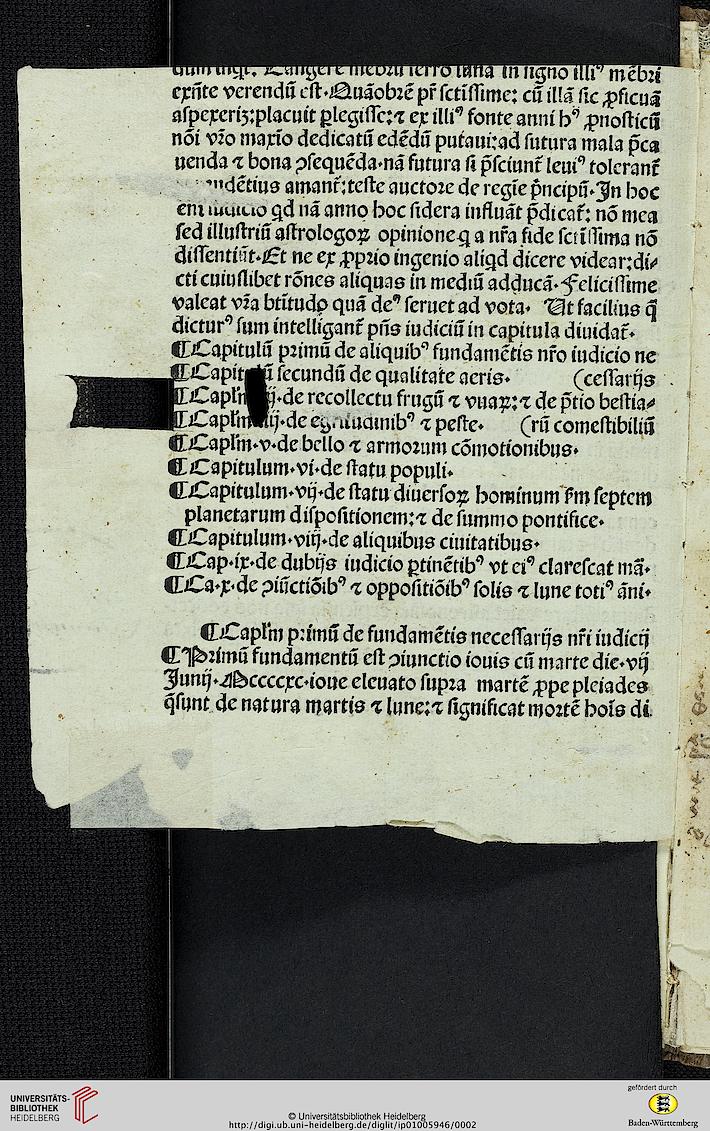 mēbrū ferro luna in signo illiꝰ mēbri
exn̄te verendū est. Quāobrē pr̄ sctīssime: cū illā sic ꝓficuā
aspexeriꝫ: placuit ꝑlegisse: ⁊ ex illiꝰ fonte anni hꝰ ꝓnosticū
nōi vr̄o maxīo dedicatū edēdū putaui: ad futura mala p̄ca
uenda ⁊ bona ꝯsequēda. nā futura si p̄sciunt̄ leuiꝰ tolerant̄
dētius amant̄: teste auctore de regīe p̄ncipū. In hoc
em̄ iudicio qd nā anno hoc sidera influāt p̄dicat̄: nō mea
sed illustriū astrologoꝝ opinione q a nr̄a fide sctīssima nō
dissentiūt. Et ne ex ꝓprio ingenio aliqd dicere videar: di⸗
cti cuiuslibet rōnes aliquas in mediū adducā. Felicissime
valeat vr̄a btītudo quā deꝰ seruet ad vota. Ut facilius q̄
dicturꝰ sum intelligant̄ pn̄s iudiciū in capitula diuidat̄.
¶Capitulū primū de aliquibꝰ fundamētis nr̄o iudicio ne
¶Capit ū secundū de qualitate aeris. (cessarijs
¶Capl̄m ij. de recollectu frugū ⁊ vuaꝝ: ⁊ de p̄tio bestia⸗
¶Capl̄m iiij. de egritudinibꝰ ⁊ peste. (rū comestibiliū
¶Capl̄m. v. de bello ⁊ armorum cōmotionibus.
¶Capitulum. vi. de statu populi.
¶Capitulum. vij. de statu diuersoꝝ hominum s̄m septem
planetarum dispositionem: ⁊ de summo pontifice.
¶Capitulum. viij. de aliquibus ciuitatibus.
¶Cap. ix. de dubijs iudicio ꝑtinētibꝰ vt eiꝰ clarescat mā.
¶Ca. x. de ꝯiūctiōibꝰ ⁊ oppositiōibꝰ solis ⁊ lune totiꝰ āni.
¶Capl̄m primū de fundamētis necessarijs nr̄i iudicij
¶Primū fundamentū est ꝯiunctio iouis cū marte die. vij
Junij. Mccccxc. ioue eleuato supra martē ꝓpe pleiades
q̄ sunt de natura martis ⁊ lune: ⁊ significat mortē hoīs di
UNIVERSITÄTS-
BIBLIOTHEK
HEIDELBERG
© Universitätsbibliothek Heidelberg
http://digi.ub.uni-heidelberg.de/diglit/ip01005946/0002
gefördert durch
Baden-Württemberg